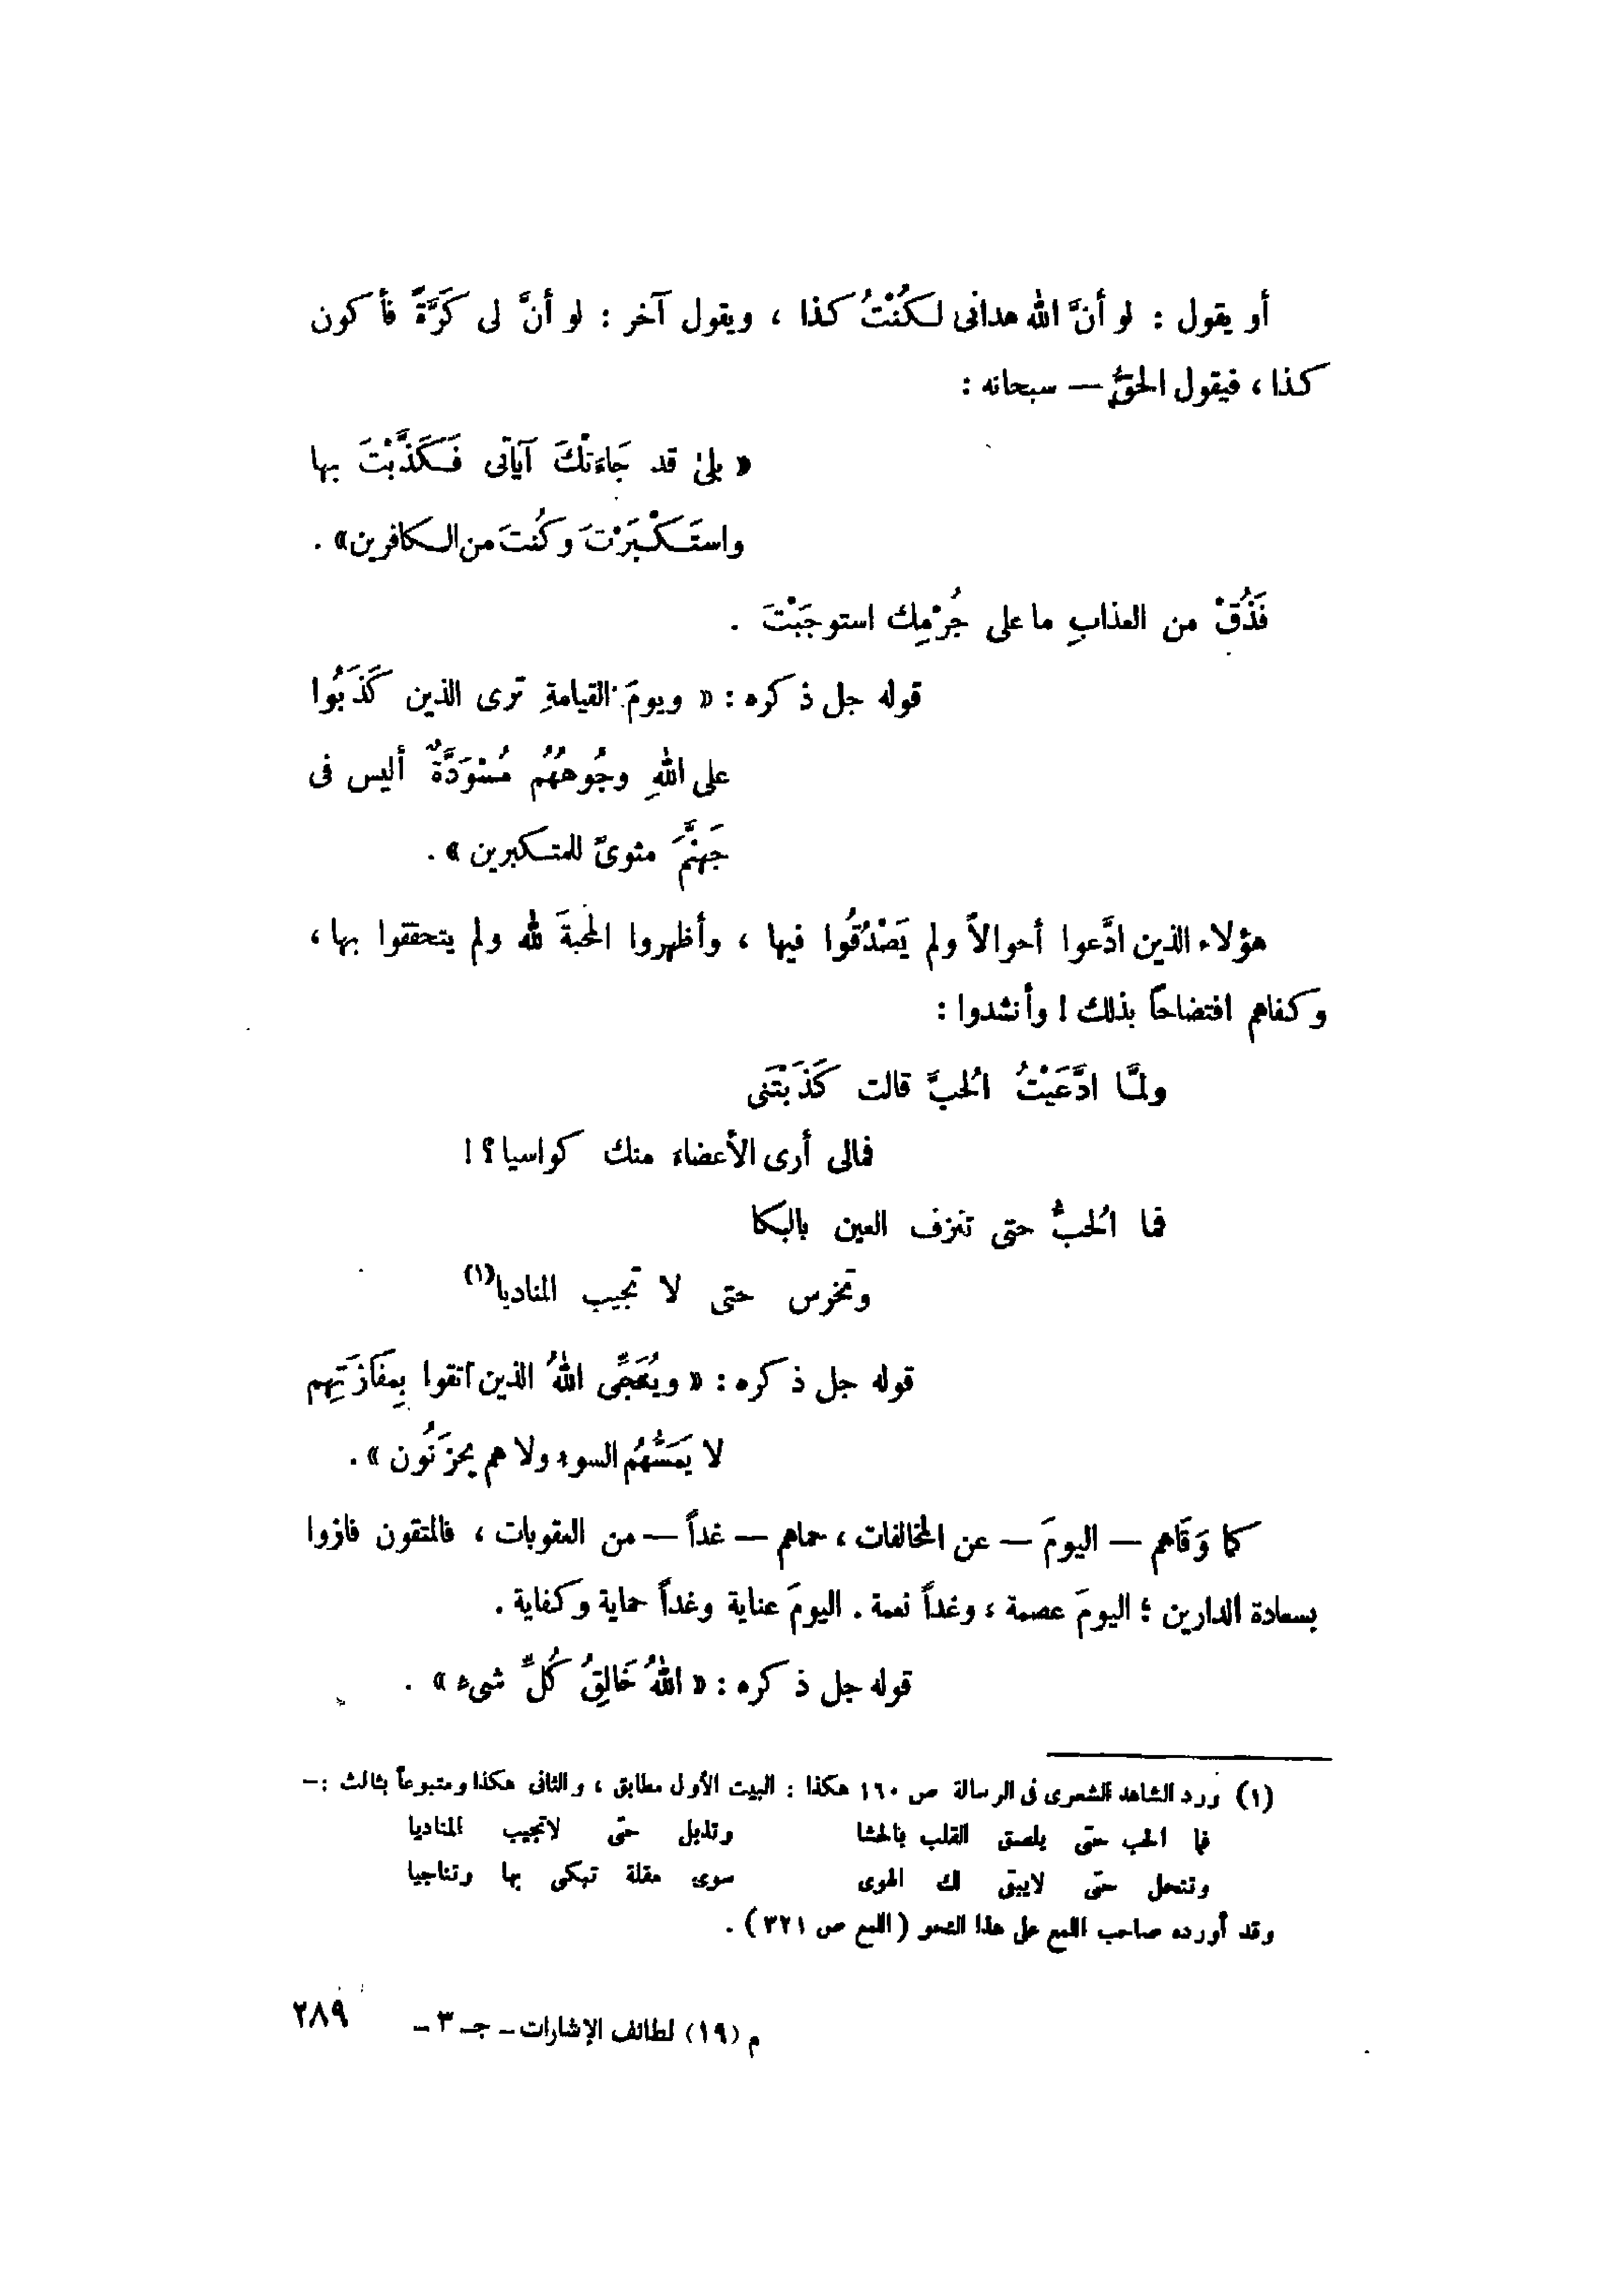 أو يقول : لو أنَّ الله هدانى لكُنْتُ كذا ، ويقول آخر : لو أنَّ لى كَرَّةً فأكون
كذا ، فيقول الحقُّ — سبحانه :
« بلىٰ قد جَاءَتْكَ آياتى فَكَذَّبْتَ بها
واستَكْبَرْتَ وكُنتَ من الكافرين» .
فَذُقْ من العذابِ ما على جُرْمِك استوجَبْتَ .
قوله جل ذكره : « ويومَ القيامةِ ترى الذين كَذَبُوا
على اللهِ وجُوههُم مُسْوَدَّةٌ أليس فى
جَهنَّمَ مثوىً للمتكبرين » .
هؤلاء الذين ادَّعوا أحوالاً ولم يَصْدُقُوا فيها ، وأظهروا المحبةَ لله ولم يتحققوا بها ،
وكفاهم افتضاحاً بذلك ! وأنشدوا :
ولمَّا ادَّعَيْتُ الُحبَّ قالت كَذَبْتَنى
فمالى أرى الأعضاءَ منك كواسيا ؟ !
فما الُحبُّ حتى تنزف العين بالبكا
وتخرس حتى لا تجيب المناديا(١)
قوله جل ذكره : « ويُنَجِّى اللهُ الذين اتقوا بِمفَازَتِهِم
لا يَمَسُّهُم السوء ولا هم يحزَنُون » .
كما وَقَاهم — اليومَ — عن المخالفات ، حماهم — غداً — من العقوبات ، فالمتقون فازوا
بسعادة الدارين ؛ اليومَ عصمة ، وغداً نعمة . اليومَ عناية وغداً حماية وكفاية .
قوله جل ذكره : « اللهُ خَالِقُ كُلِّ شىء » .
(١) ورد الشاهد الشعرى فى الرسالة ص ١٦٠ هكذا : البيت الأول مطابق ، والثانى هكذا ومتبوعاً بثالث :–
فما الحب حتى يلصق القلب بالحشا وتذبل حتى لاتجيب المناديا
وتنحل حتى لايبقى لك الهوى سوى مقلة تبكى بها وتناجيا
وقد أورده صاحب اللمع على هذا النحو (اللمع ص ٣٢١) .
م (١٩) لطائف الإشارات – جـ ٣ – ٢٨٩